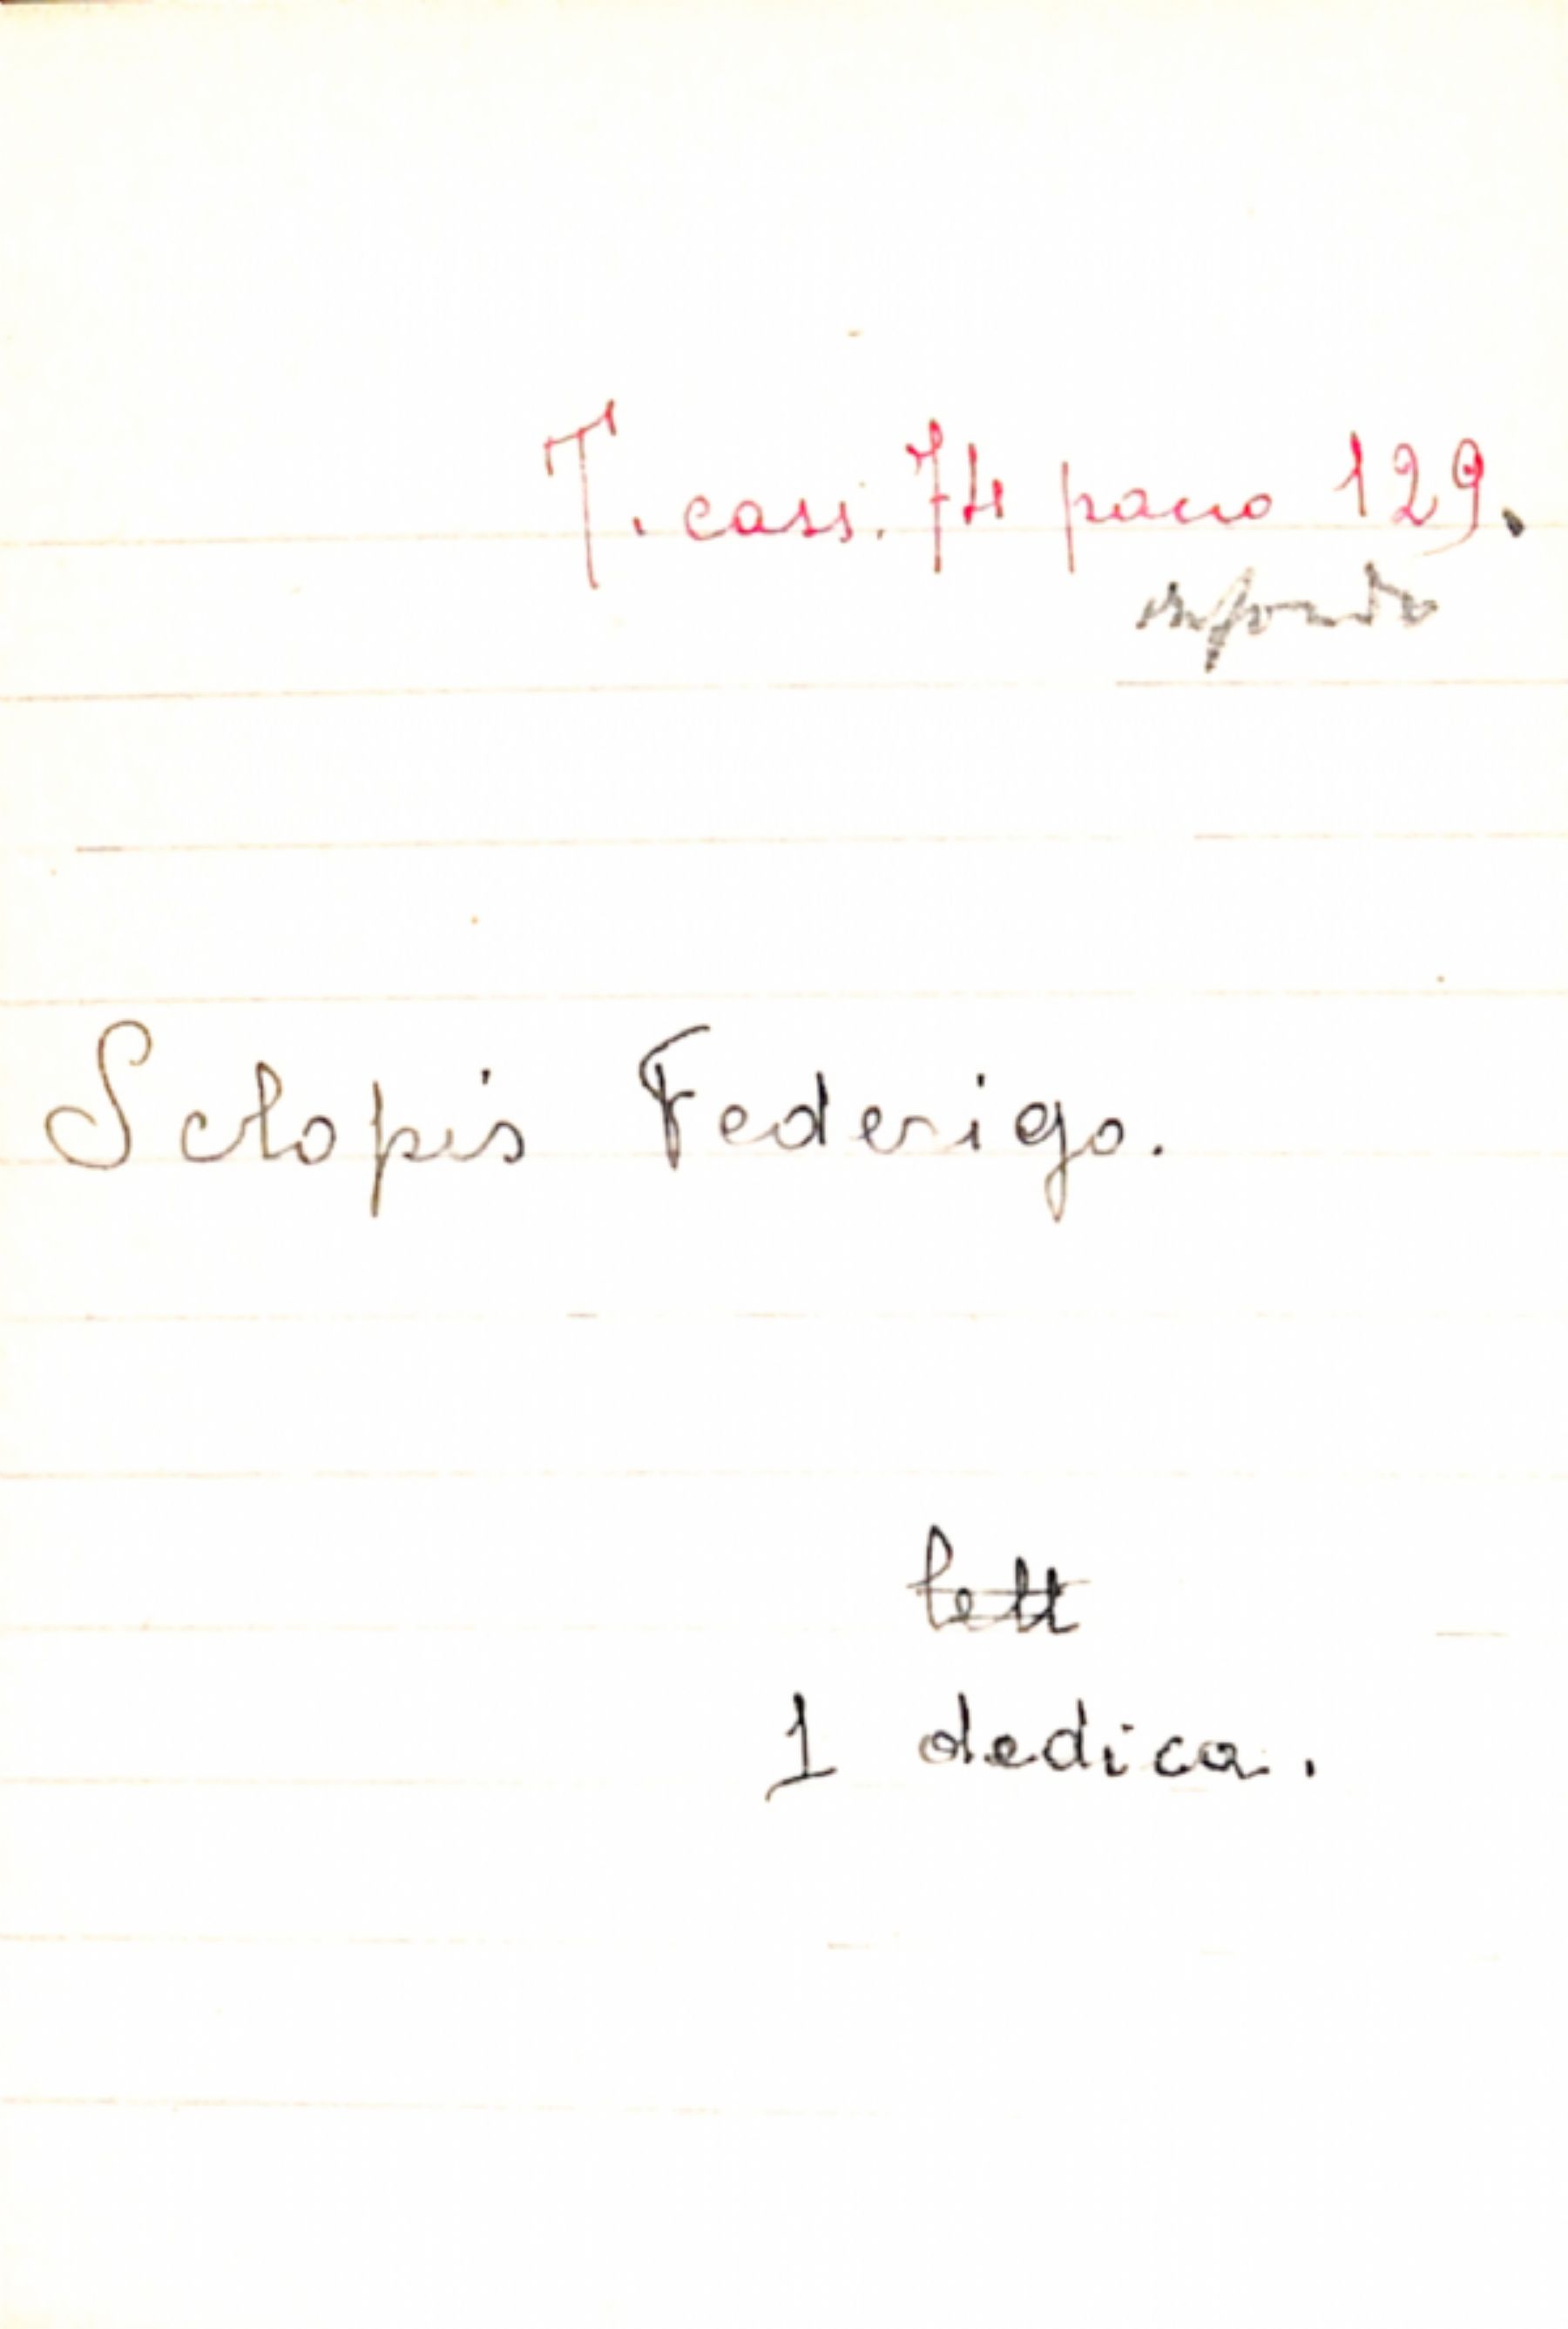 T. cass. 74 pacco 129.
in fondo
Sclopis Federigo.
lett
1 dedica.